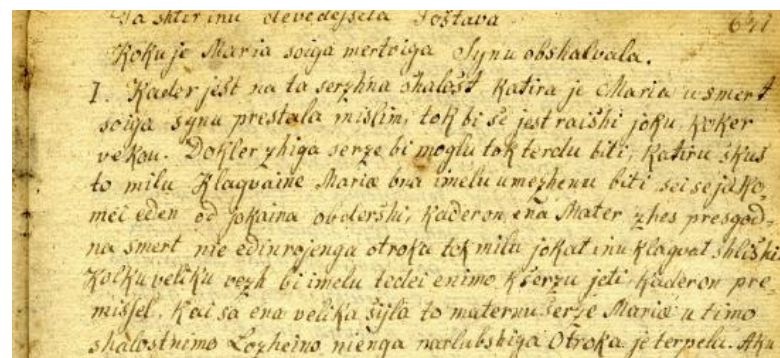 Ta shtir inu devedesseta Postava 641
Koku je Maria soiga mertviga Synu obshalvala.
I. Kader jest na ta serzhna shalost katira je Maria u smert
soiga synu prestala mislim, tok bi se jest raishi joku, koker
vekou. Dokler zhiga serze bi moglu tok terdu biti, katiru skus
to milu Klagvaine Mariæ bna imelu umezhenu biti, sei se jeko-
mei eden od jokaina obdershi, kaderon ena Mater zhes presgod-
na smert nie edinrojenga otroka tok milu jokat inu klagvat shlishi.
Kolku veliku vezh bi imelu tedei enimo k serzu jeti, kaderon pre-
missel. Kai sa ena velika sijla to maternu serze Mariæ u timo
shalostnimo Lozheino nienga narlubshiga Otroka je terpelu. Aku